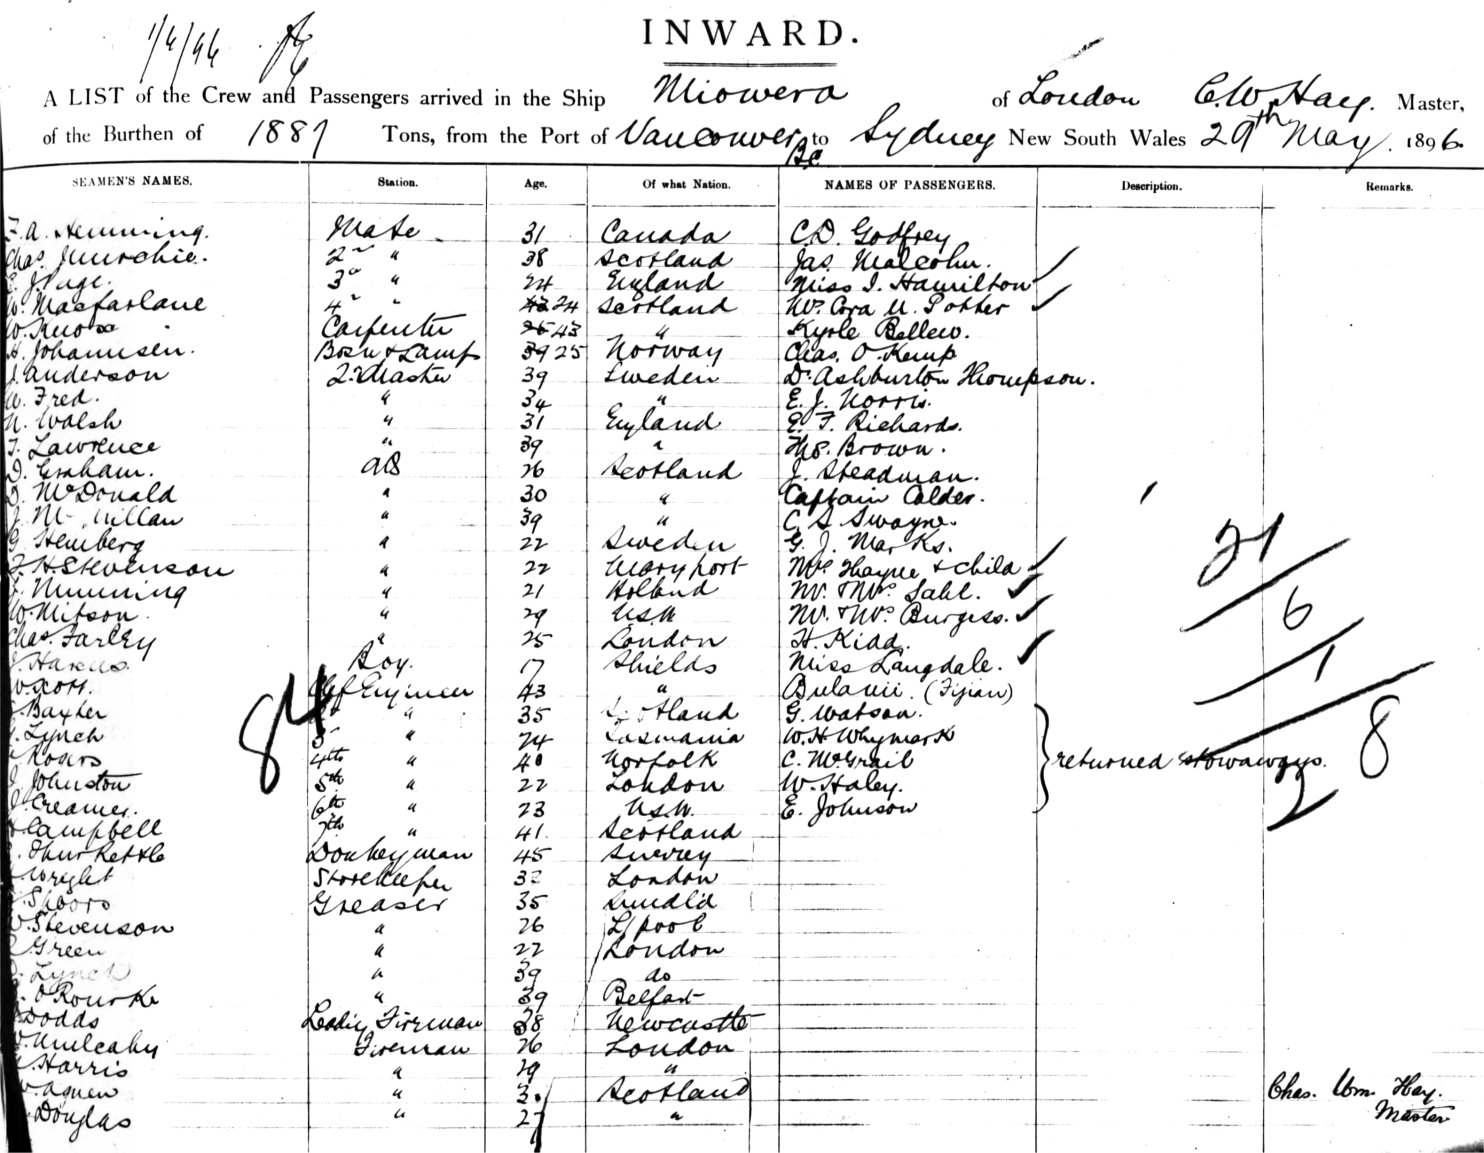 1/6/96
INWARD.
A LIST of the Crew and Passengers arrived in the Ship Miowera of London C.W. Hay. Master,
of the Burthen of 1887 Tons, from the Port of Vancouver BC to Sydney New South Wales 29th May. 1896.
SEAMEN'S NAMES. Station. Age. Of what Nation. NAMES OF PASSENGERS. Description. Remarks.
F. A. Hemming. Mate 31 Canada C.D. Godfrey
Chas. 2nd " 38 Scotland Jas. Malcolm.
J Page. 3rd " 24 England Miss I. Hamilton
W. Macfarlane 4th " 24 Scotland Mrs. Cora U. Potter
W. Knox Carpenter 43 " Kyrle Bellew.
Johannsen. Bosn & Lamps 25 Norway Chas. O. Kemp
J. Anderson Q. Master 39 Sweden Dr. Ashburton Thompson.
W. Fred. " 34 " E. J. Norris.
N. Walsh " 31 England E. F. Richards.
T. Lawrence " 39 " Brown.
D. Graham. AB 26 Scotland J. Steadman.
McDonald " 30 " Captain Calder.
J. McMillan " 39 " C S Swayne.
G. Stenberg " 22 Sweden G. J. Marks.
H. Stevenson " 22 Maryport Mrs Hayne & child
" 21 Holland Mr. & Mrs. Sahl.
W. Mitson " 29 NSW Mr. & Mrs. Burgess.
Chas. Farley " 25 London H. Kidd.
Boy. 17 Shields Miss Langdale.
W. Scott. Chf Engineer 43 " Bulavii. (Fijian)
Baxter " 35 Scotland G. Watson.
Lynch 3rd " 24 Tasmania W. H Whymark
Rogers 4th " 40 Norfolk C. McGrail returned stowaways.
J. Johnston 5th " 22 London W. Haley.
J. Creamer. 6th " 23 NSW. E. Johnson
Campbell 7th " 41 Scotland
Thurkettle Donkeyman 45 Surrey
Wright Storekeeper 32 London
Spoors Greaser 35 Sundl'd
Stevenson " 26 L'pool
Green " 22 London
Lynch " 39 do
O'Rourke " 39 Belfast
Dodds Leading Fireman 38 Newcastle
Mulcahy Fireman 26 London
Harris " 29 "
Agnew " 30 Scotland
Douglas " 27 "
84
21
6
1
8
2
Chas. Wm. Hay.
Master